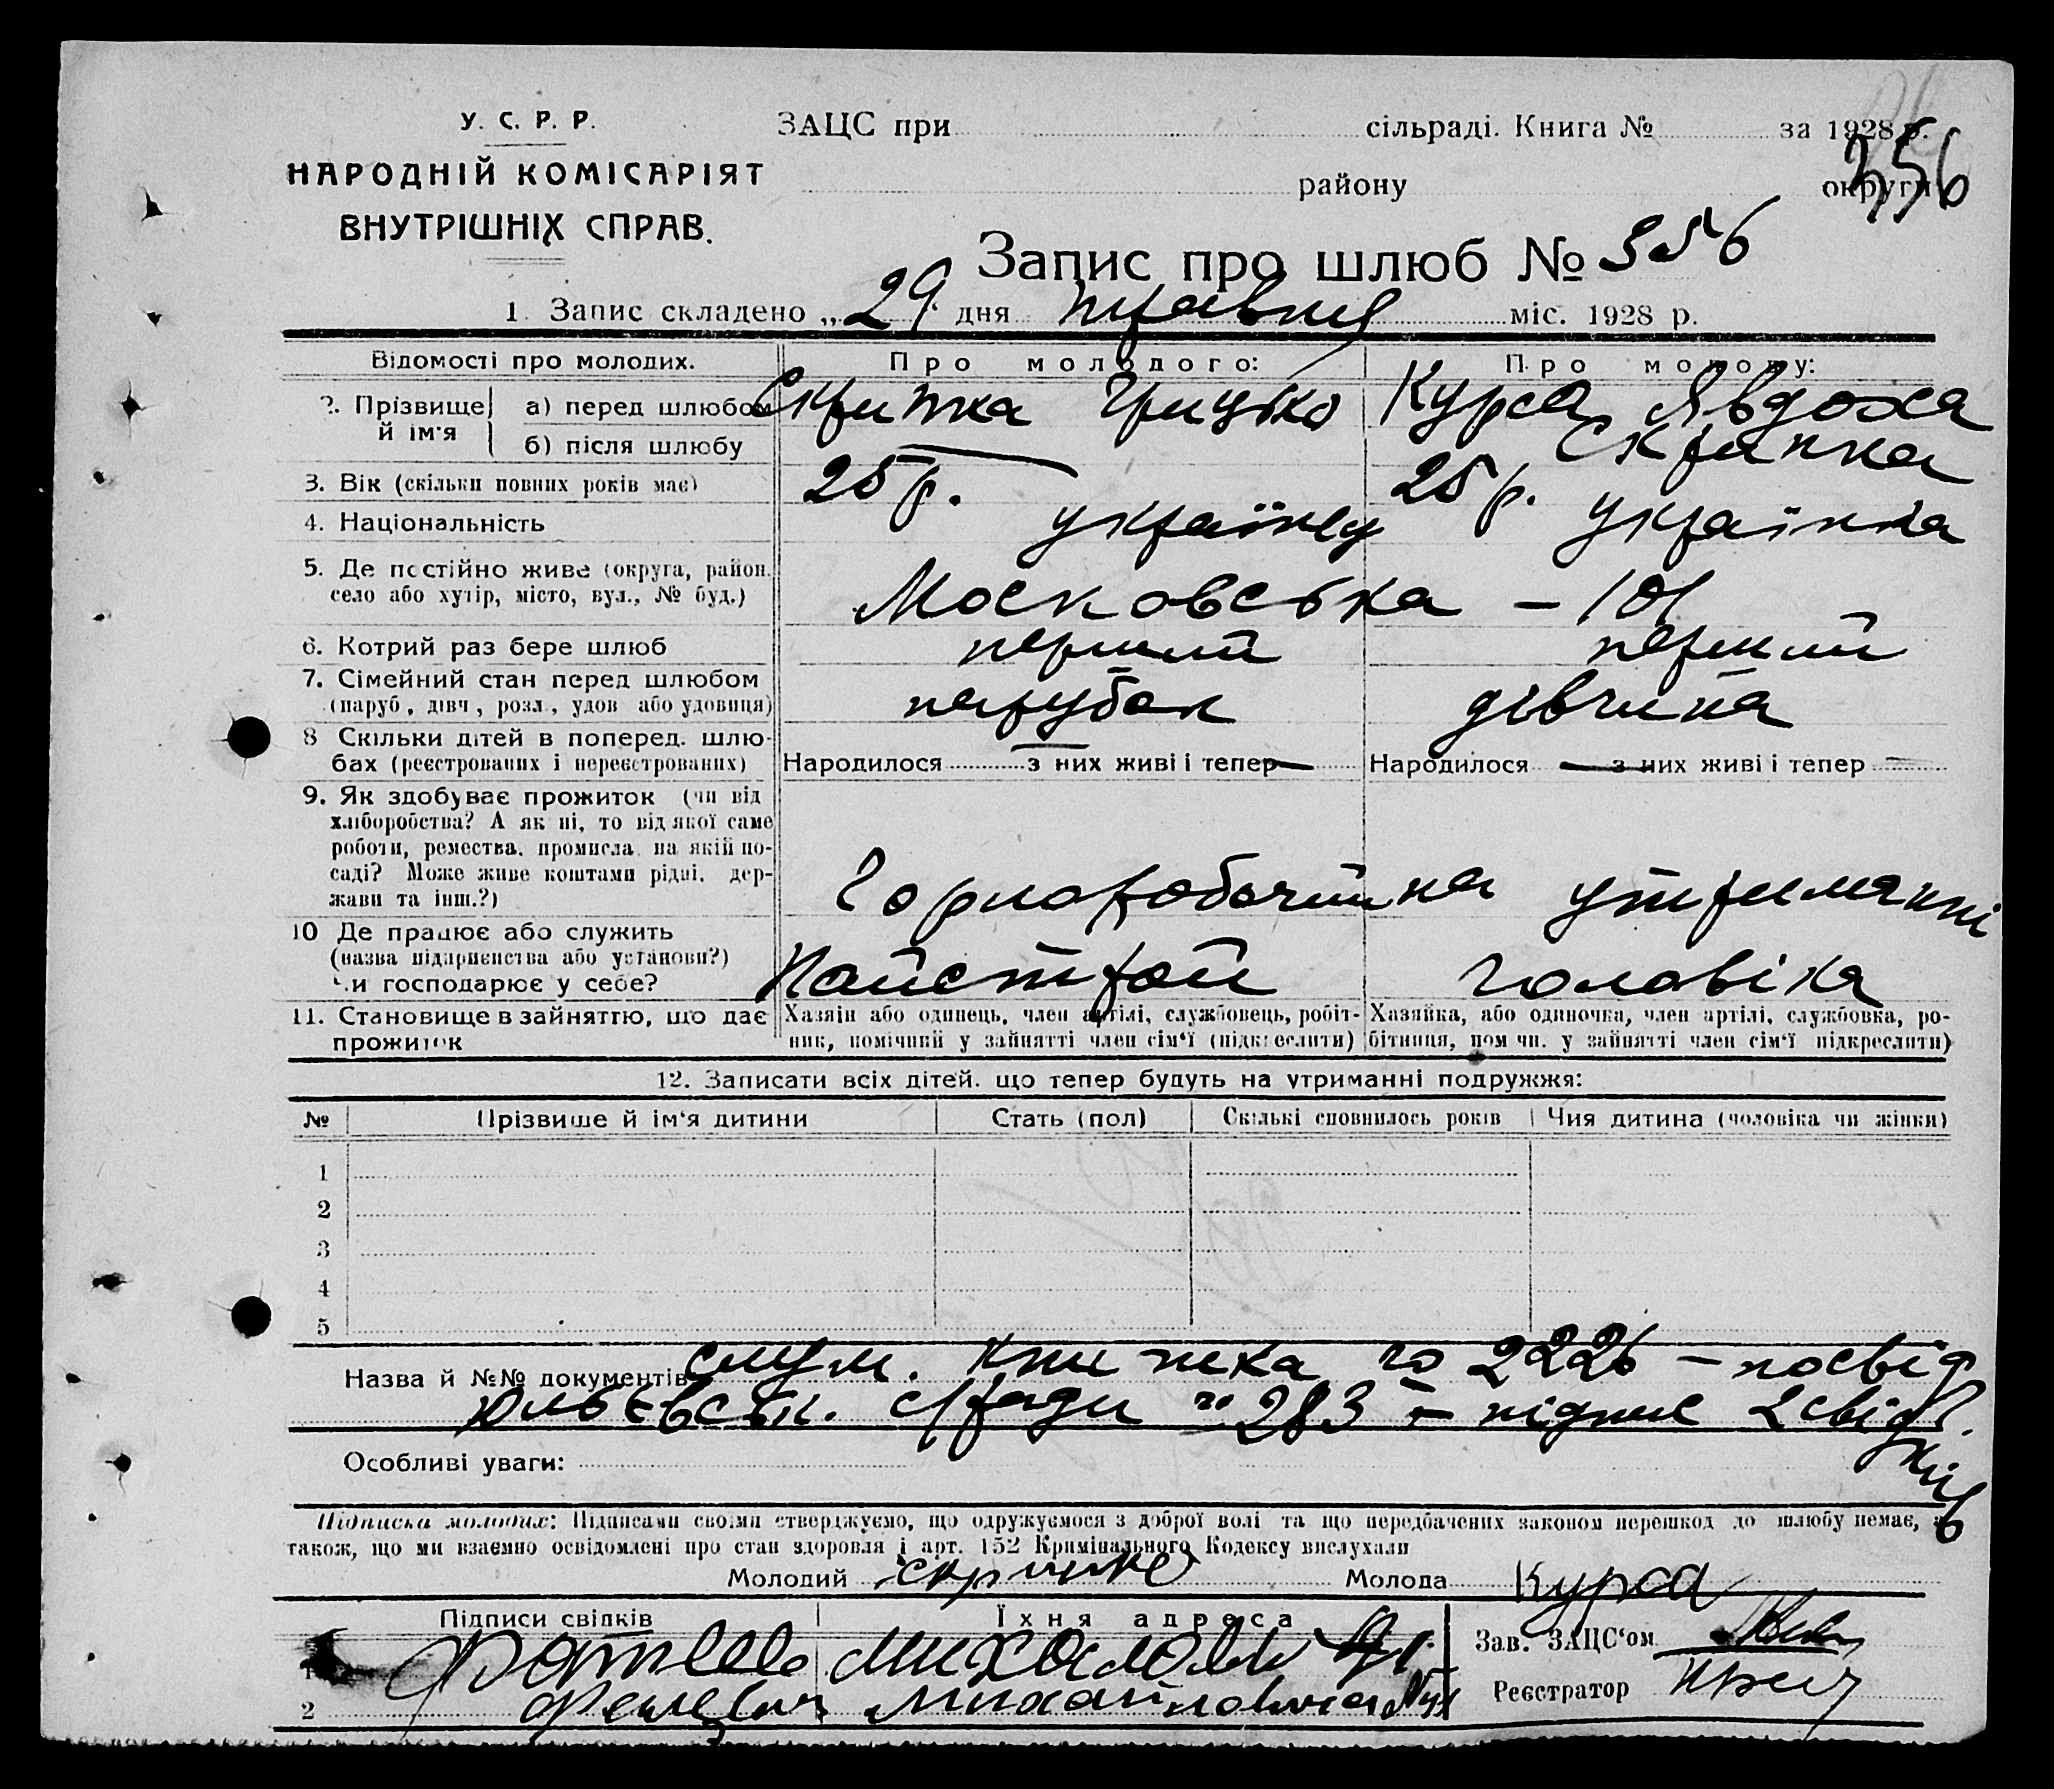 У. С. Р. Р.
НАРОДНІЙ КОМІСАРІЯТ
ВНУТРІШНІХ СПРАВ.
ЗАЦС при сільраді. Книга № за 1928 р.
району округи
356
Запис про шлюб № 356
1. Запис складено „29" дня травня міс. 1928 р.
Відомості про молодих. Про молодого: Про молоду:
2. Прізвище й ім'я а) перед шлюбом Скрипка Грицько Курса Явдоха
б) після шлюбу — Скрипка
3. Вік (скільки повних років має) 25 р. 25 р.
4. Національність українец українка
5. Де постійно живе (округа, район, село або хутір, місто, вул., № буд.) Московська — 101
6. Котрий раз бере шлюб перший перший
7. Сімейний стан перед шлюбом (паруб., дівч., розл., удов або удовиця) парубок дівчина
8 Скільки дітей в поперед. шлюбах (реєстрованих і нереєстрованих) Народилося — з них живі і тепер — Народилося — з них живі і тепер —
9. Як здобуває прожиток (чи від хліборобства? А як ні, то від якої саме роботи, ремества, промисла, на якій посаді? Може живе коштами рідні, держави та інш.?) Чорноробочий на утриманні
10 Де працює або служить (назва підприємства або установи?) Чи господарює у себе? чоловіка
11. Становище в зайняттю, що дає прожиток Хазяїн або одинець, член артілі, службовець, робітник, помічний у зайнятті член сім'ї (підкреслити) Хазяйка, або одиночка, член артілі, службовка, робітниця, помічн. у зайнятті член сім'ї підкреслити)
12. Записати всіх дітей. що тепер будуть на утриманні подружжя:
№ Прізвище й ім'я дитини Стать (пол) Скількі сповнилось років Чия дитина (чоловіка чи жінки)
1
2
3
4
5
Назва й №№ документів книжка № 2226 — посвід
с/ради № 283 — підпис 2 свідків
Особливі уваги:
Підписка молодих: Підписами своїми стверджуємо, що одружуємося з доброї волі та що передбачених законом перешкод до шлюбу немає, а
також, що ми взаємно освідомлені про стан здоровля і арт. 152 Кримінального Кодексу вислухали
Молодий Скрипка Молода Курса
Підписи свідків Їхня адреса Зав. ЗАЦС'ом
1
2 Реєстратор